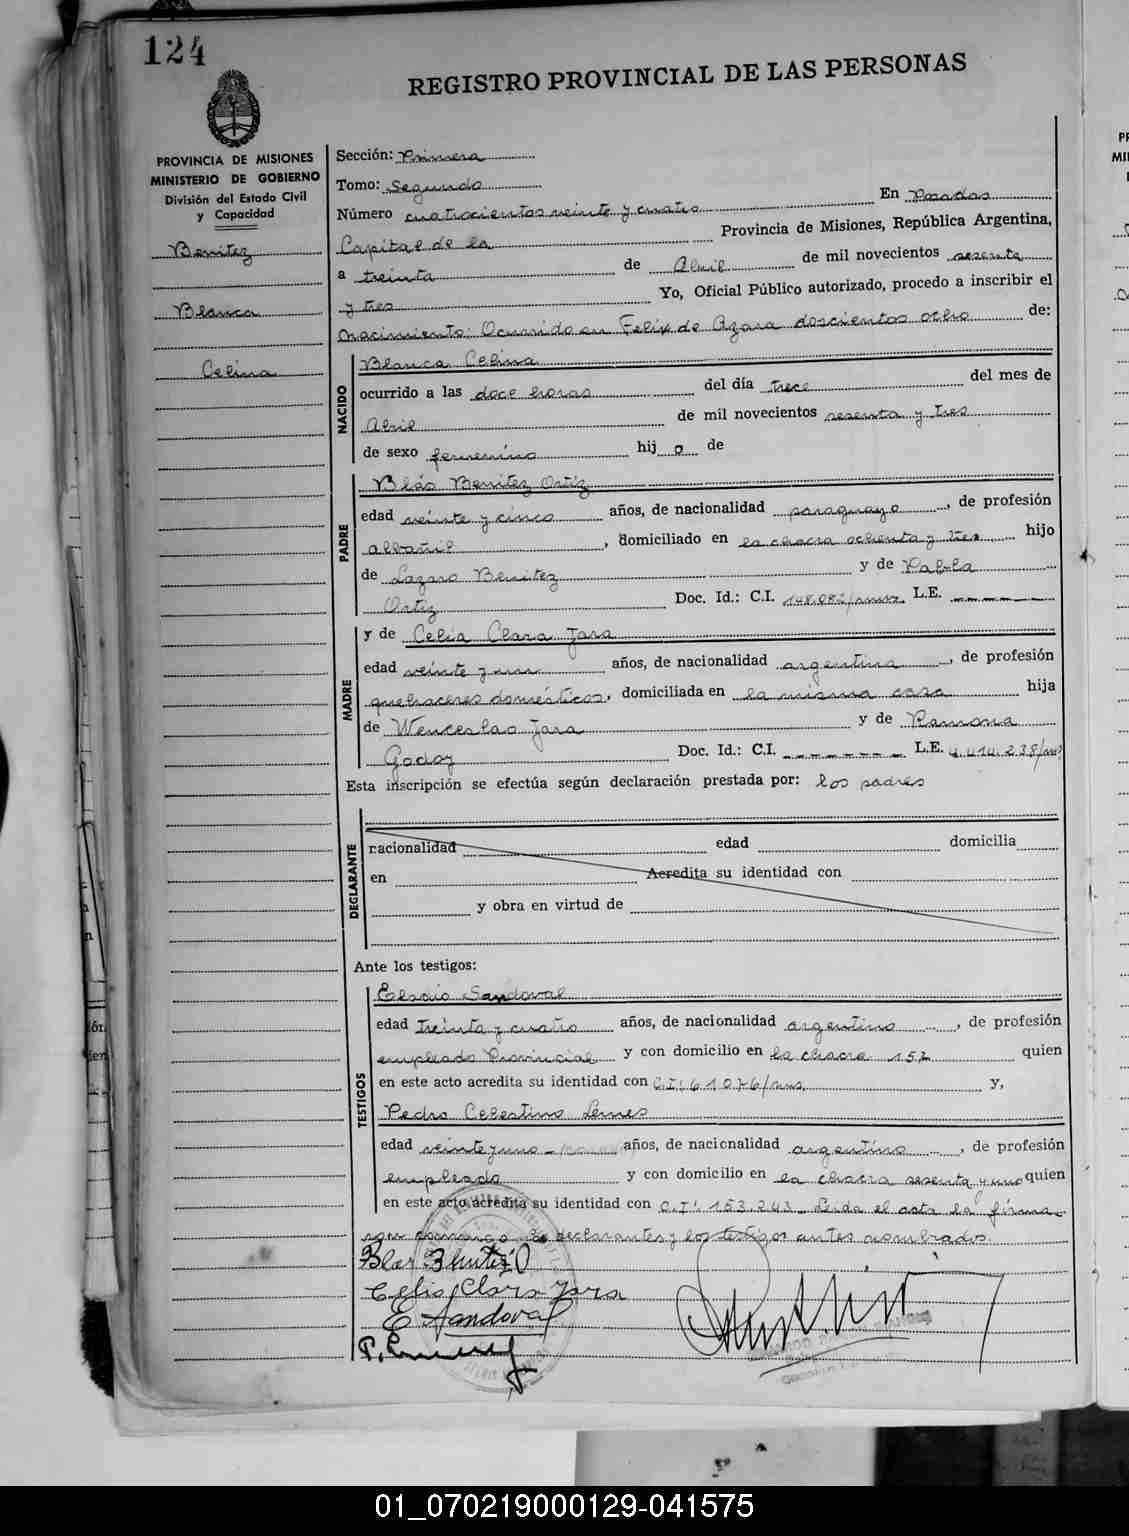 124
REGISTRO PROVINCIAL DE LAS PERSONAS
PROVINCIA DE MISIONES
MINISTERIO DE GOBIERNO
División del Estado Civil
y Capacidad
Benitez
Blanca
Celina
Sección: Primera
Tomo: Segundo
Número cuatrocientos veinte y cuatro En Posadas
Capital de la Provincia de Misiones, República Argentina,
a treinta de Abril de mil novecientos sesenta
y tres Yo, Oficial Público autorizado, procedo a inscribir el
nacimiento: Ocurrido en Felix de Azara doscientos ocho de:
NACIDO
Blanca Celina
ocurrido a las doce horas del día trece del mes de
Abril de mil novecientos sesenta y tres
de sexo femenino hij a de
PADRE
Blás Benitez Ortiz
edad veinte y cinco años, de nacionalidad paraguayo, de profesión
albañil, domiciliado en la chacra ochenta y tres hijo
de Lazaro Benitez y de Pabla
Ortiz Doc. Id.: C.I. 148.082/mnes. L.E.
MADRE
y de Celia Clara Jara
edad veinte y un años, de nacionalidad argentina, de profesión
quehaceres domésticos, domiciliada en la misma casa hija
de Wenceslao Jara y de Ramona
Godoy Doc. Id.: C.I. L.E. 4.414.238/mns
Esta inscripción se efectúa según declaración prestada por: los padres
DECLARANTE
nacionalidad edad domicilia
en Acredita su identidad con
y obra en virtud de
Ante los testigos:
TESTIGOS
Sandoval
edad treinta y cuatro años, de nacionalidad argentino, de profesión
empleado Provincial y con domicilio en la chacra 157 quien
en este acto acredita su identidad con C.I: 61076/mns y,
Pedro Celestino Lemes
edad veinte y uno años, de nacionalidad argentino, de profesión
empleado y con domicilio en la chacra sesenta y uno quien
en este acto acredita su identidad con C.I: 153.243. Leida el acta la firma
conmigo los declarantes y los testigos antes nombrados.
Blas Benitez O
Celia Clara Jara
E Sandoval
01_070219000129-041575